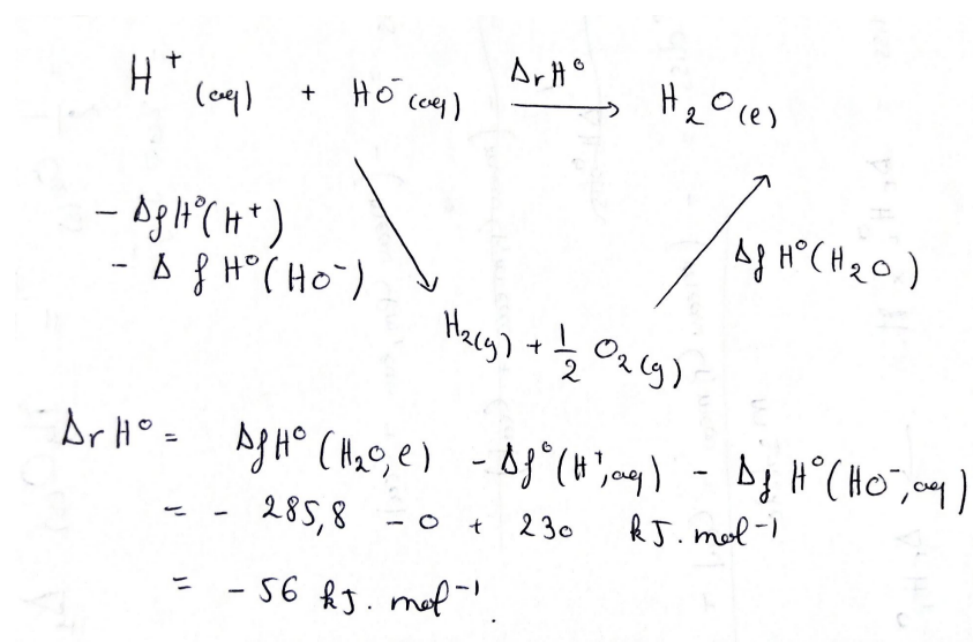 H⁺(aq) + HO⁻(aq) ⟶ H₂O(l)
ΔrH°
- ΔfH°(H⁺)
- ΔfH°(HO⁻)
ΔfH°(H₂O)
H₂(g) + 1/2 O₂(g)
ΔrH° = ΔfH°(H₂O,l) - Δf°(H⁺,aq) - ΔfH°(HO⁻,aq)
= - 285,8 - 0 + 230 kJ.mol⁻¹
= - 56 kJ.mol⁻¹.